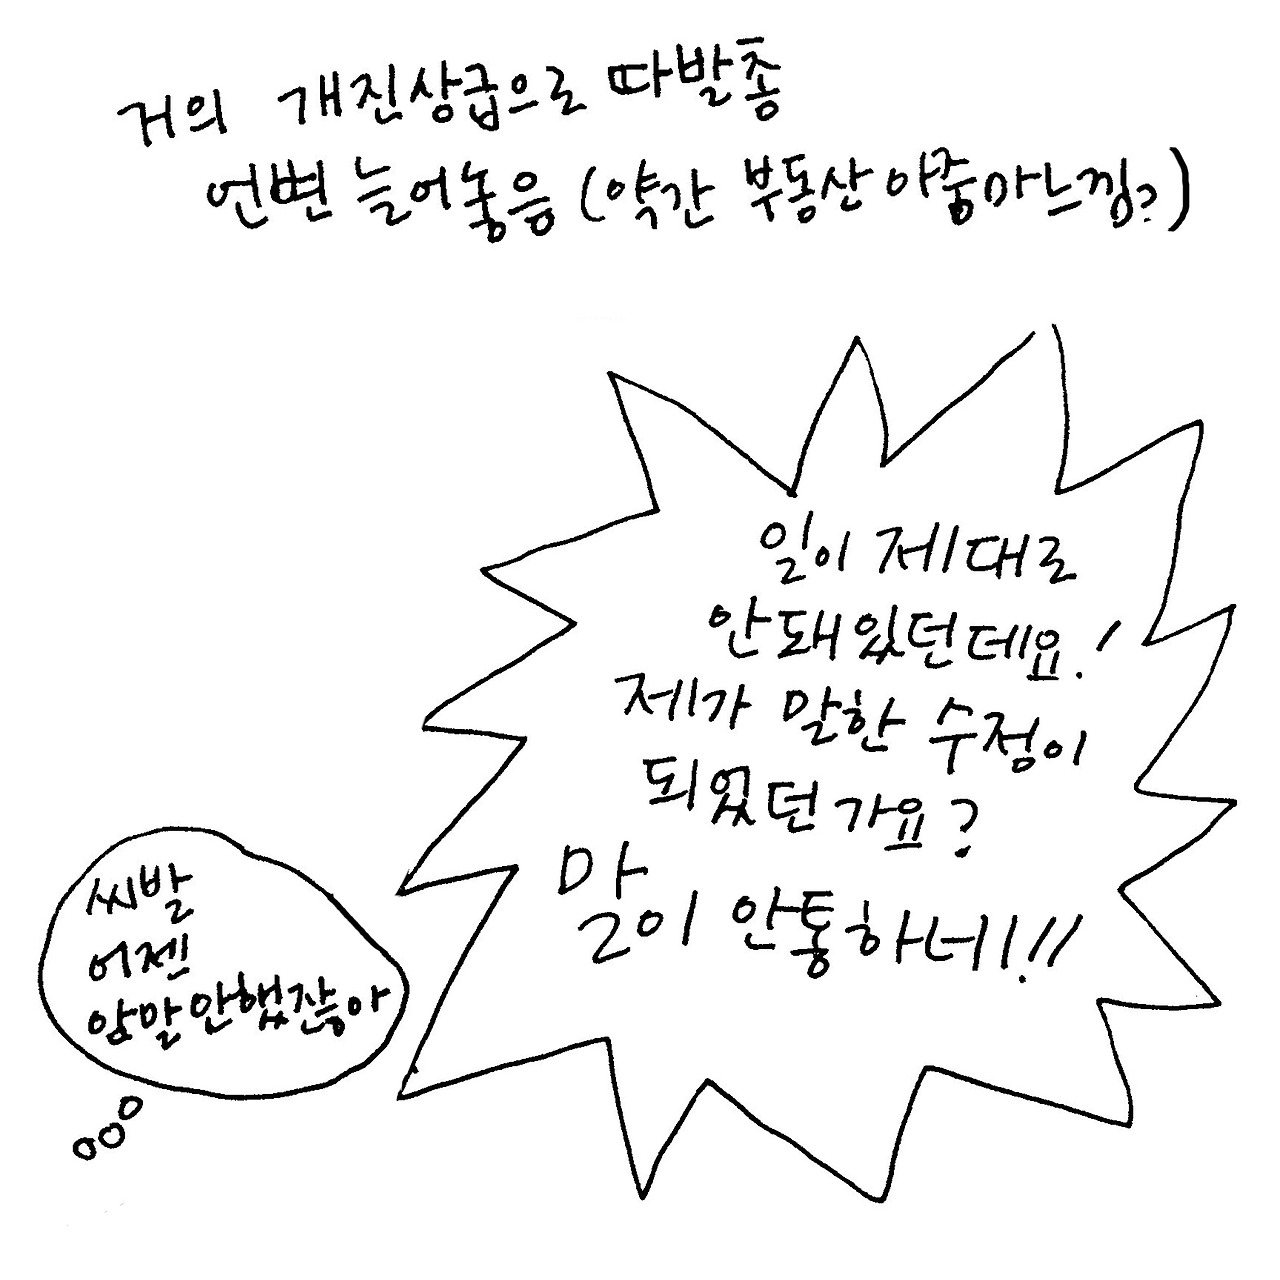 거의 개진상급으로 따발총
언변 늘어놓음 (약간 부동산 아줌마느낌?)
일이 제대로
안돼있던데요!
제가 말한 수정이
되었던가요?
말이 안통하네!!
씨발
어젠
암말안했잖아